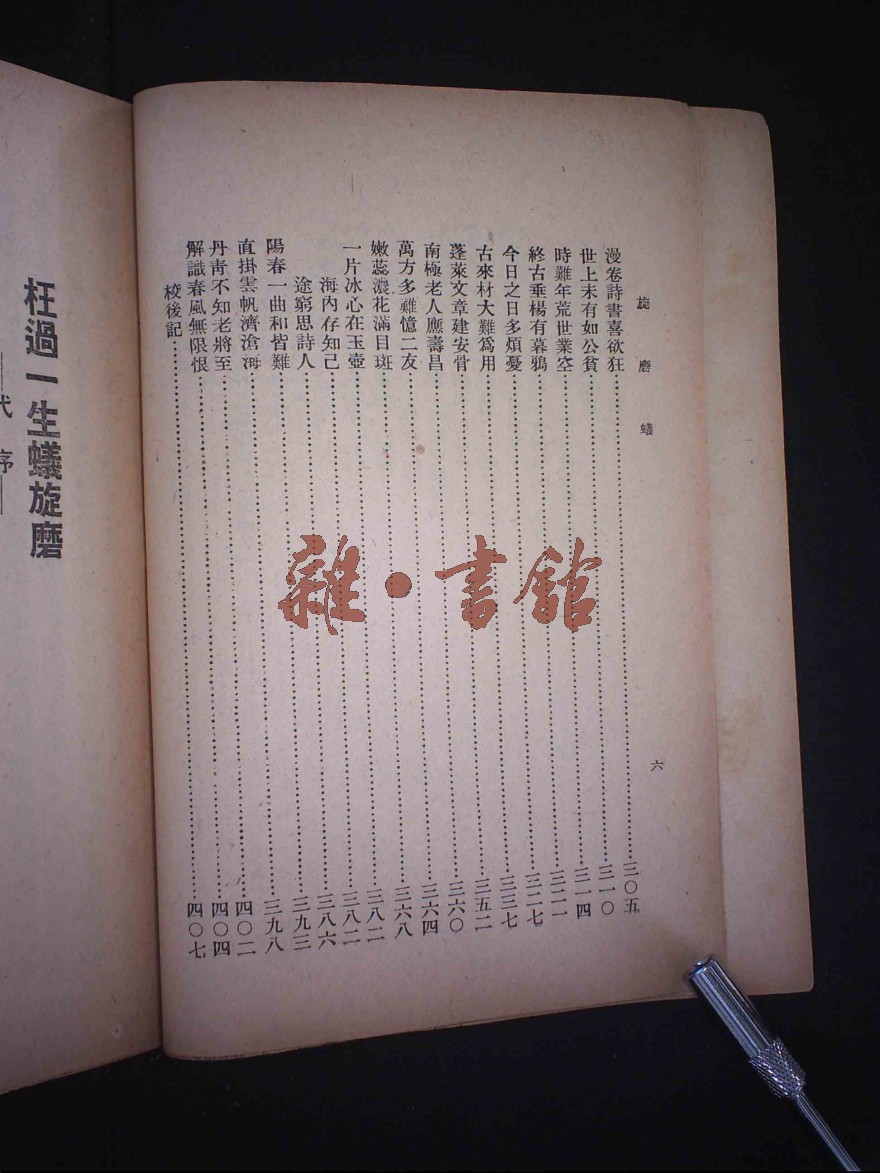 旋磨蟻 六
漫卷詩書喜欲狂……三〇五
世上未有如公貧……三一〇
時難年荒世業空……三一四
終古垂楊有暮鴉……三二一
今日之日多煩憂……三二七
古來材大難爲用……三三七
蓬萊文章建安骨……三五二
南極老人應壽昌……三六〇
萬方多難憶二友……三六四
嫩蕊濃花滿目斑……三六八
一片冰心在玉壺……三八二
海內存知己……三八二
途窮思詩人……三八六
陽春一曲和皆難……三九三
直掛雲帆濟滄海……三九八
丹青不知老將至……四〇二
解識春風無限恨……四〇四
校後記……四〇七
枉過一生蟻旋磨
—代序—
雜·書館